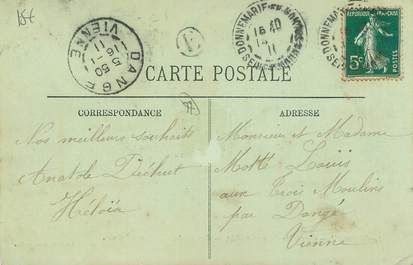 154
DANGÉ
5 50
16 -1
11
VIENNE
E
DONNEMARIE-EN-MONTOIS
SEINE-ET-MARNE
11
RÉPUBLIQUE FRANÇAISE
5c
CARTE POSTALE
CORRESPONDANCE
ADRESSE
Nos meilleurs souhaits
Anatole
Héloïse
Monsieur et Madame
Motte Louis
aux Trois Moulins
par Dangé
Vienne